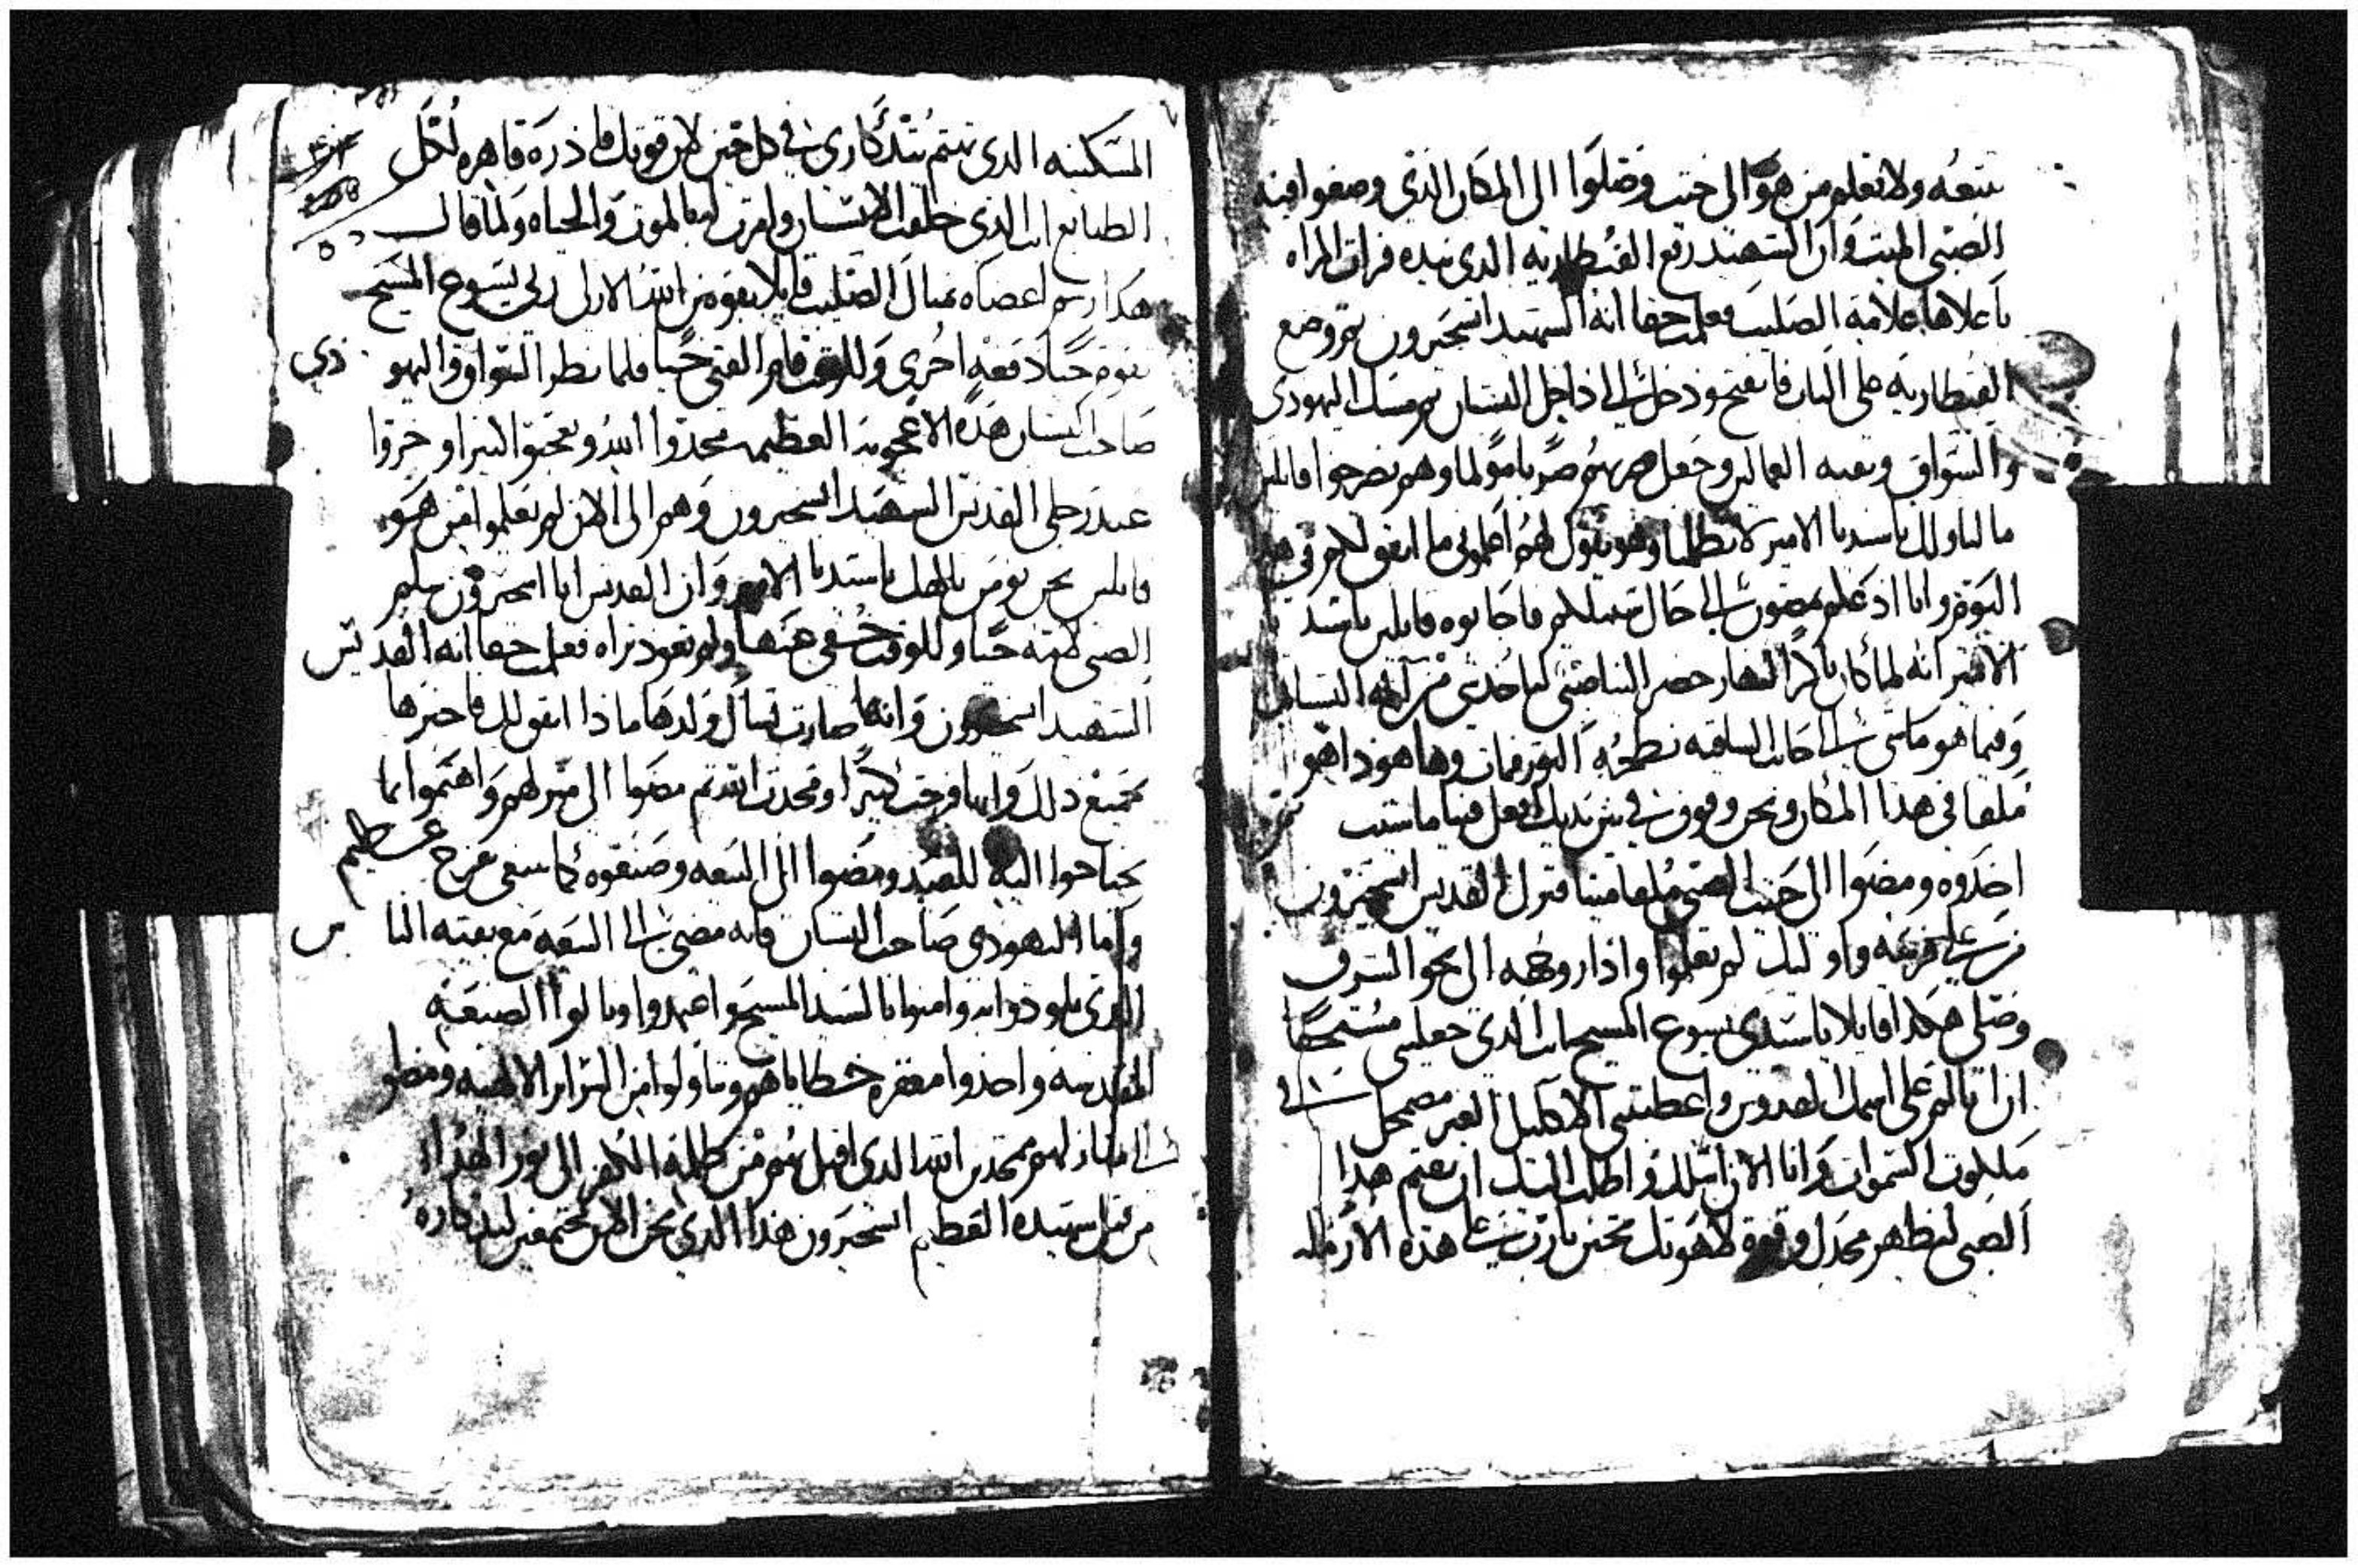 تتبعه ولا تعلم من هو الى حيث وصلوا الى المكان الذي وضعوا فيه
الصبي الميت وان الشهيد رفع القنطاريه الذي بيده فرات المراه
باعلاها علامة الصليب فعلمت حقا انه الشهيد اسحيرون ثم وضع
القنطاريه على الباب فانفتح ودخل الى داخل البستان ثم مسك اليهودي
والسواق وبقيه العمالين وجعل يضربهم ضربا مولما وهم يصرخوا قايلين
مالنا ولك يا سيدنا الامير لا تظلمنا وهو يقول لهم اعلموني ما اتفق لكم في هذا
اليوم وانا اذ علم بمضور الى حال سبيلكم فاجابوه قايلين يا سيدنا
الامير انه لما كان باكر النهار حضر الينا صبي لياخذ من البستان
وفيما هو ماشي الى جانب الساقيه نطحه الثور فمات وها هوذا هو
ملقا في هذا المكان ونحن وقوف بين يديك افعل فينا ما شيت ثم
اخذوه ومضوا الى حيث الصبي ملقا ميتا فنزل القديس اسحيرون
من على فرسه واوليك لم يعلموا وادار وجهه الى نحو الشرق
وصلى هكذا قايلا يا سيدي يسوع المسيح انت الذي جعلني مستحقا
ان اتالم على اسمك القدوس واعطيتني الاكليل الغير مضمحل في
ملكوت السموات وانا الان اسلك واطلب اليك ان يقيم هذا
الصبي ليظهر مجدك وقوة لاهوتك تحنن يا رب على هذه الارمله
المسكينه الذي تهتم بتذكاري في كل حين لان قوتك قادره قاهره لكل
الطبايع انت الذي خلقت الانسان وامرت له بالموت والحياه ولما قال
هكذا رسم اعضاه بمثال الصليب قايلا بقوة من الازلي ربي يسوع المسيح
تقوم حيا دفعه اخرى وللوقت قام الفتى حيا فلما نظر السواق واليهودي
صاحب البستان هذه الاعجوبه العظيمه مجدوا الله وتعجبوا كثيرا وخروا
عند رجلي القديس الشهيد اسحيرون وهم الى الان لم يعلموا من هو
قايلين نحن نومن بالهك يا سيدنا الامير وان القديس ابا اسحيرون سلم
الصبي لامه حيا وللوقت خفي عنها ولم تعود تراه فعلمت حقا انه القديس
الشهيد اسحيرون وانها صارت تسال ولدها ماذا اتفق لك فاخبرها
بجميع ذلك وانها فرحت كثيرا ومجدت الله ثم مضوا الى منزلهم واهتموا بما
يحتاجوا اليه للعيد ومضوا الى البيعه وصنعوه كما ينبغي بفرح عظيم
واما اليهودي صاحب البستان فانه مضى الى البيعه مع بقيه الناس
الذي يلوذوا به وامنوا بالسيد المسيح واعتمدوا ونالوا الصبغه
المقدسه واخذوا مغفرة خطاياهم وتناولوا من السراير الالهيه ومضوا
الى منازلهم ممجدين الله الذي اقبل بهم من ظلمة الكفر الى نور الهداء
من قبل شهيده العظيم اسحيرون هذا الذي نحن الان مجتمعين لتذكاره